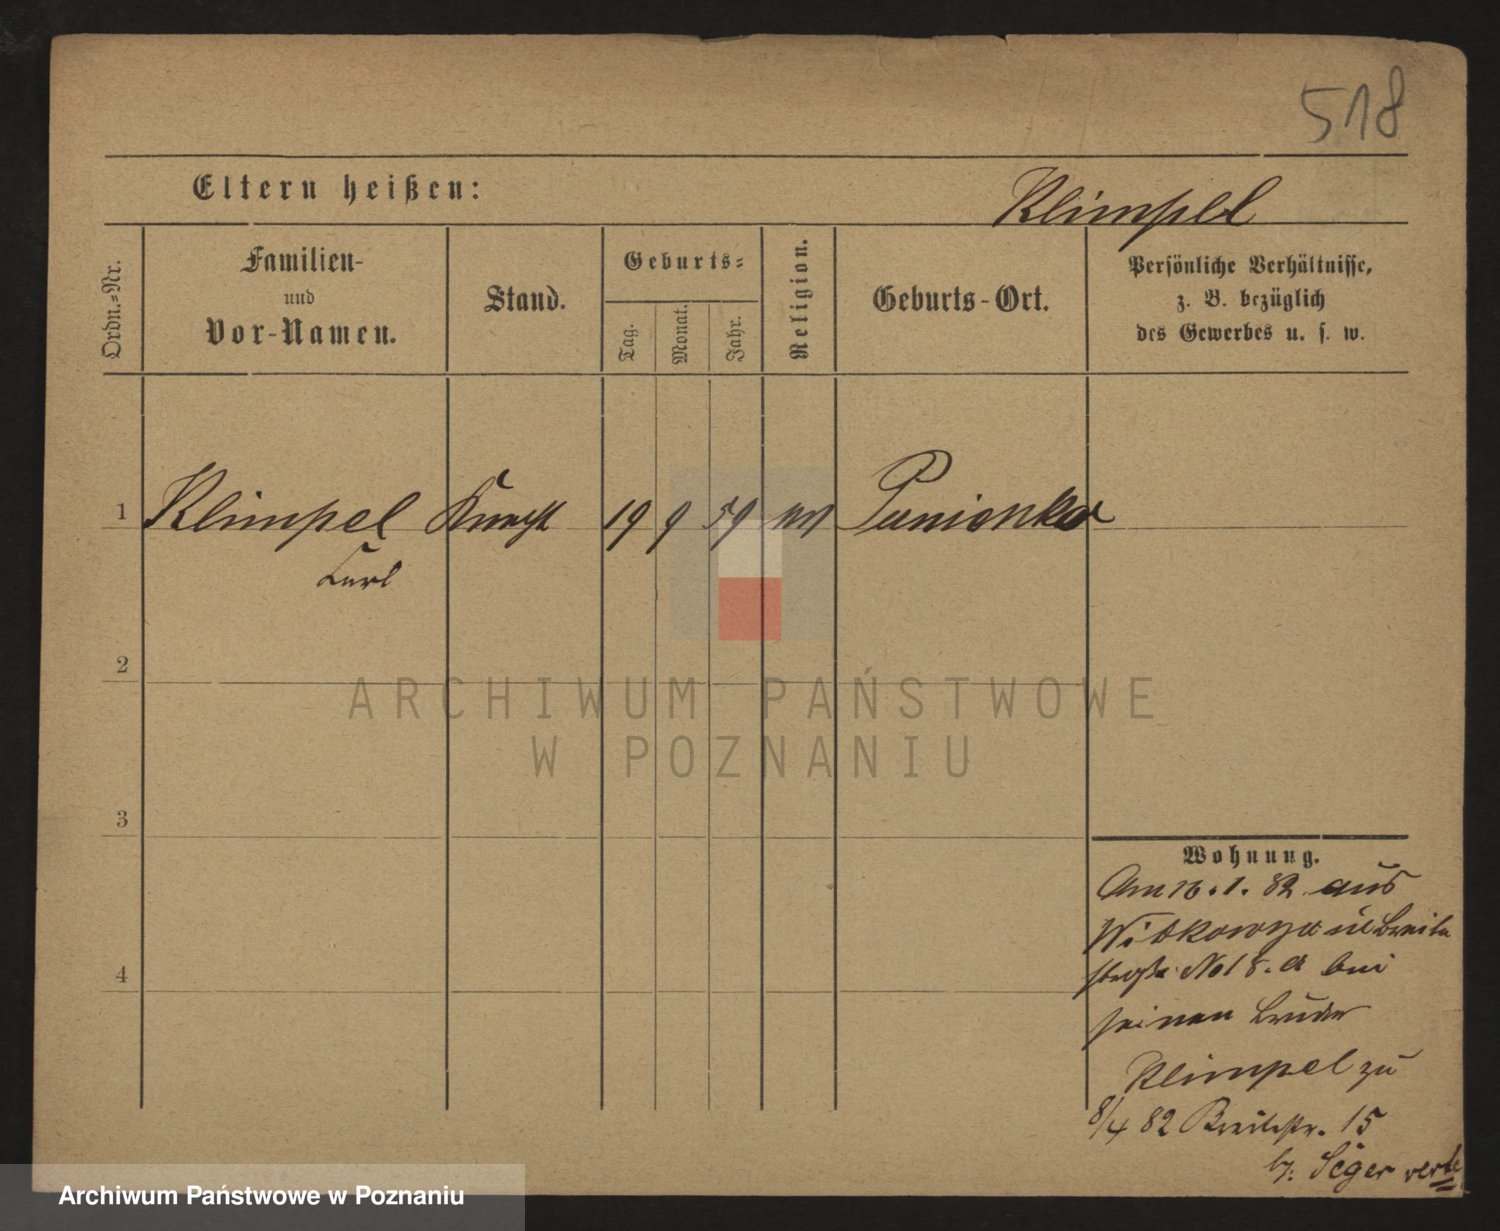 518
Eltern heißen:
Klimpel
Ordn.=Nr.
Familien-
und
Vor-Namen.
Stand.
Geburts=
Tag.
Monat.
Jahr.
Religion.
Geburts-Ort.
Persönliche Verhältnisse,
z. B. bezüglich
des Gewerbes u. s. w.
1 Klimpel Knecht 19 9 59 Panienka
Carl
2
3
4
Wohnung.
Am 16.1.82 aus
Witkowyja Breite
straße No 18.a bei
seinen Bruder
Klimpel zu
8/4 82 Breitestr. 15
b. Seger verte
ARCHIWUM PAŃSTWOWE
W POZNANIU
Archiwum Państwowe w Poznaniu